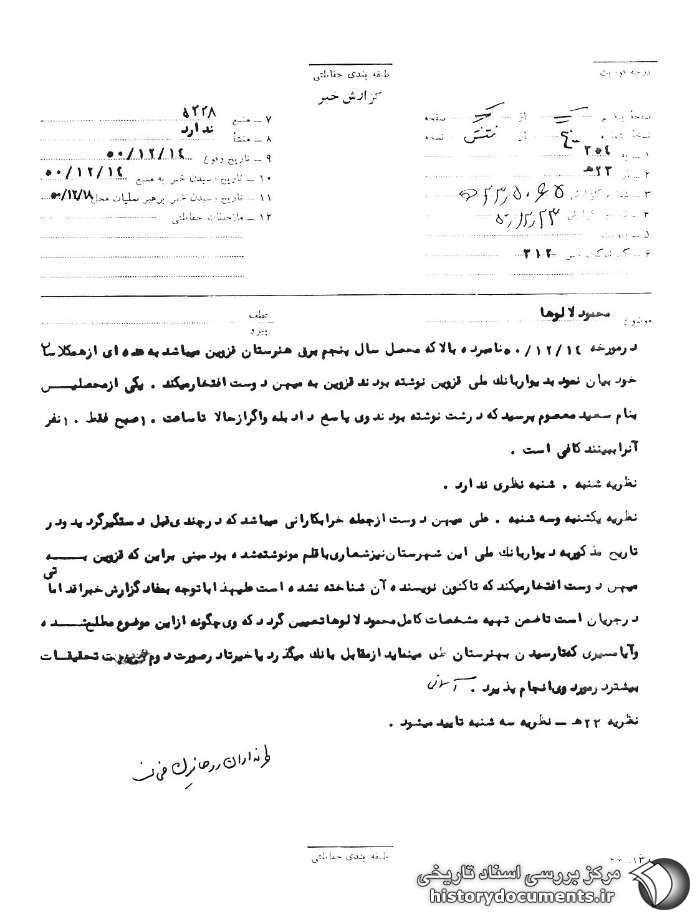 درجه فوریت
طبقه بندی حفاظتی
گزارش خبر
صفحه یکم از صفحه
نسخه شماره از نسخه
۱ ــ به ۳۵۴
۲ ــ از ۲۲ﻫ
۳ ــ شماره گزارش
۴ ــ تاریخ گزارش
۵ ــ پیوست
۶ ــ گیرندگان خبر ۳۱۲
۷ ــ منبع ۵۲۲۸
۸ ــ منشأ ندارد
۹ ــ تاریخ وقوع ۵۰/۱۲/۱۴
۱۰ ــ تاریخ رسیدن خبر به منبع ۵۰/۱۲/۱۴
۱۱ ــ تاریخ رسیدن خبر برهبر عملیات محل ۵۰/۱۲/۱۸
۱۲ ــ ملاحظات حفاظتی
موضوع محمود لالوها
عطف
پیرو
درمورخه ۵۰/۱۲/۱۴ نامبرده بالا که محصل سال پنجم برق هنرستان قزوین میباشد به عده ای از همکلاس
خود بیان نمود بدیوار بانک ملی قزوین نوشته بودند قزوین به میهن دوست افتخار میکند . یکی از محصلیـن
بنام سعید معصوم پرسید که درشت نوشته بودند وی پاسخ داد بله واگر از حالا تا ساعت ۱۰ صبح فقط ۱۰ نفر
آنرا ببینند کافی است .
نظریه شنبه . شنبه نظری ندارد .
نظریه یکشنبه وسه شنبه . علی میهن دوست ازجمله خرابکارانی میباشد که درچندی قبل دستگیر گردید ودر
تاریخ مذکور به دیوار بانک ملی این شهرستان نیز شعاری باقلم مو نوشته شده بود مبنی براین که قزوین بـــه
میهن دوست افتخار میکند که تاکنون نویسنده آن شناخته نشده است علیهذا باتوجه بمفاد گزارش خبر اقداماتی
درجریان است تاضمن تهیه مشخصات کامل محمود لالوها تعیین گردد که وی چگونه ازاین موضوع مطلع شـــده
وآیا مسیری که تا رسیدن بهنرستان طی مینماید ازمقابل بانک میگذرد یاخیر تا درصورت دوم تحقیقـات
بیشتر درمورد وی انجام پذیرد .
نظریه ۲۲ﻫ ــ نظریه سه شنبه تایید میشود .
طبقه بندی حفاظتی
مرکز بررسی اسناد تاریخی
historydocuments.ir